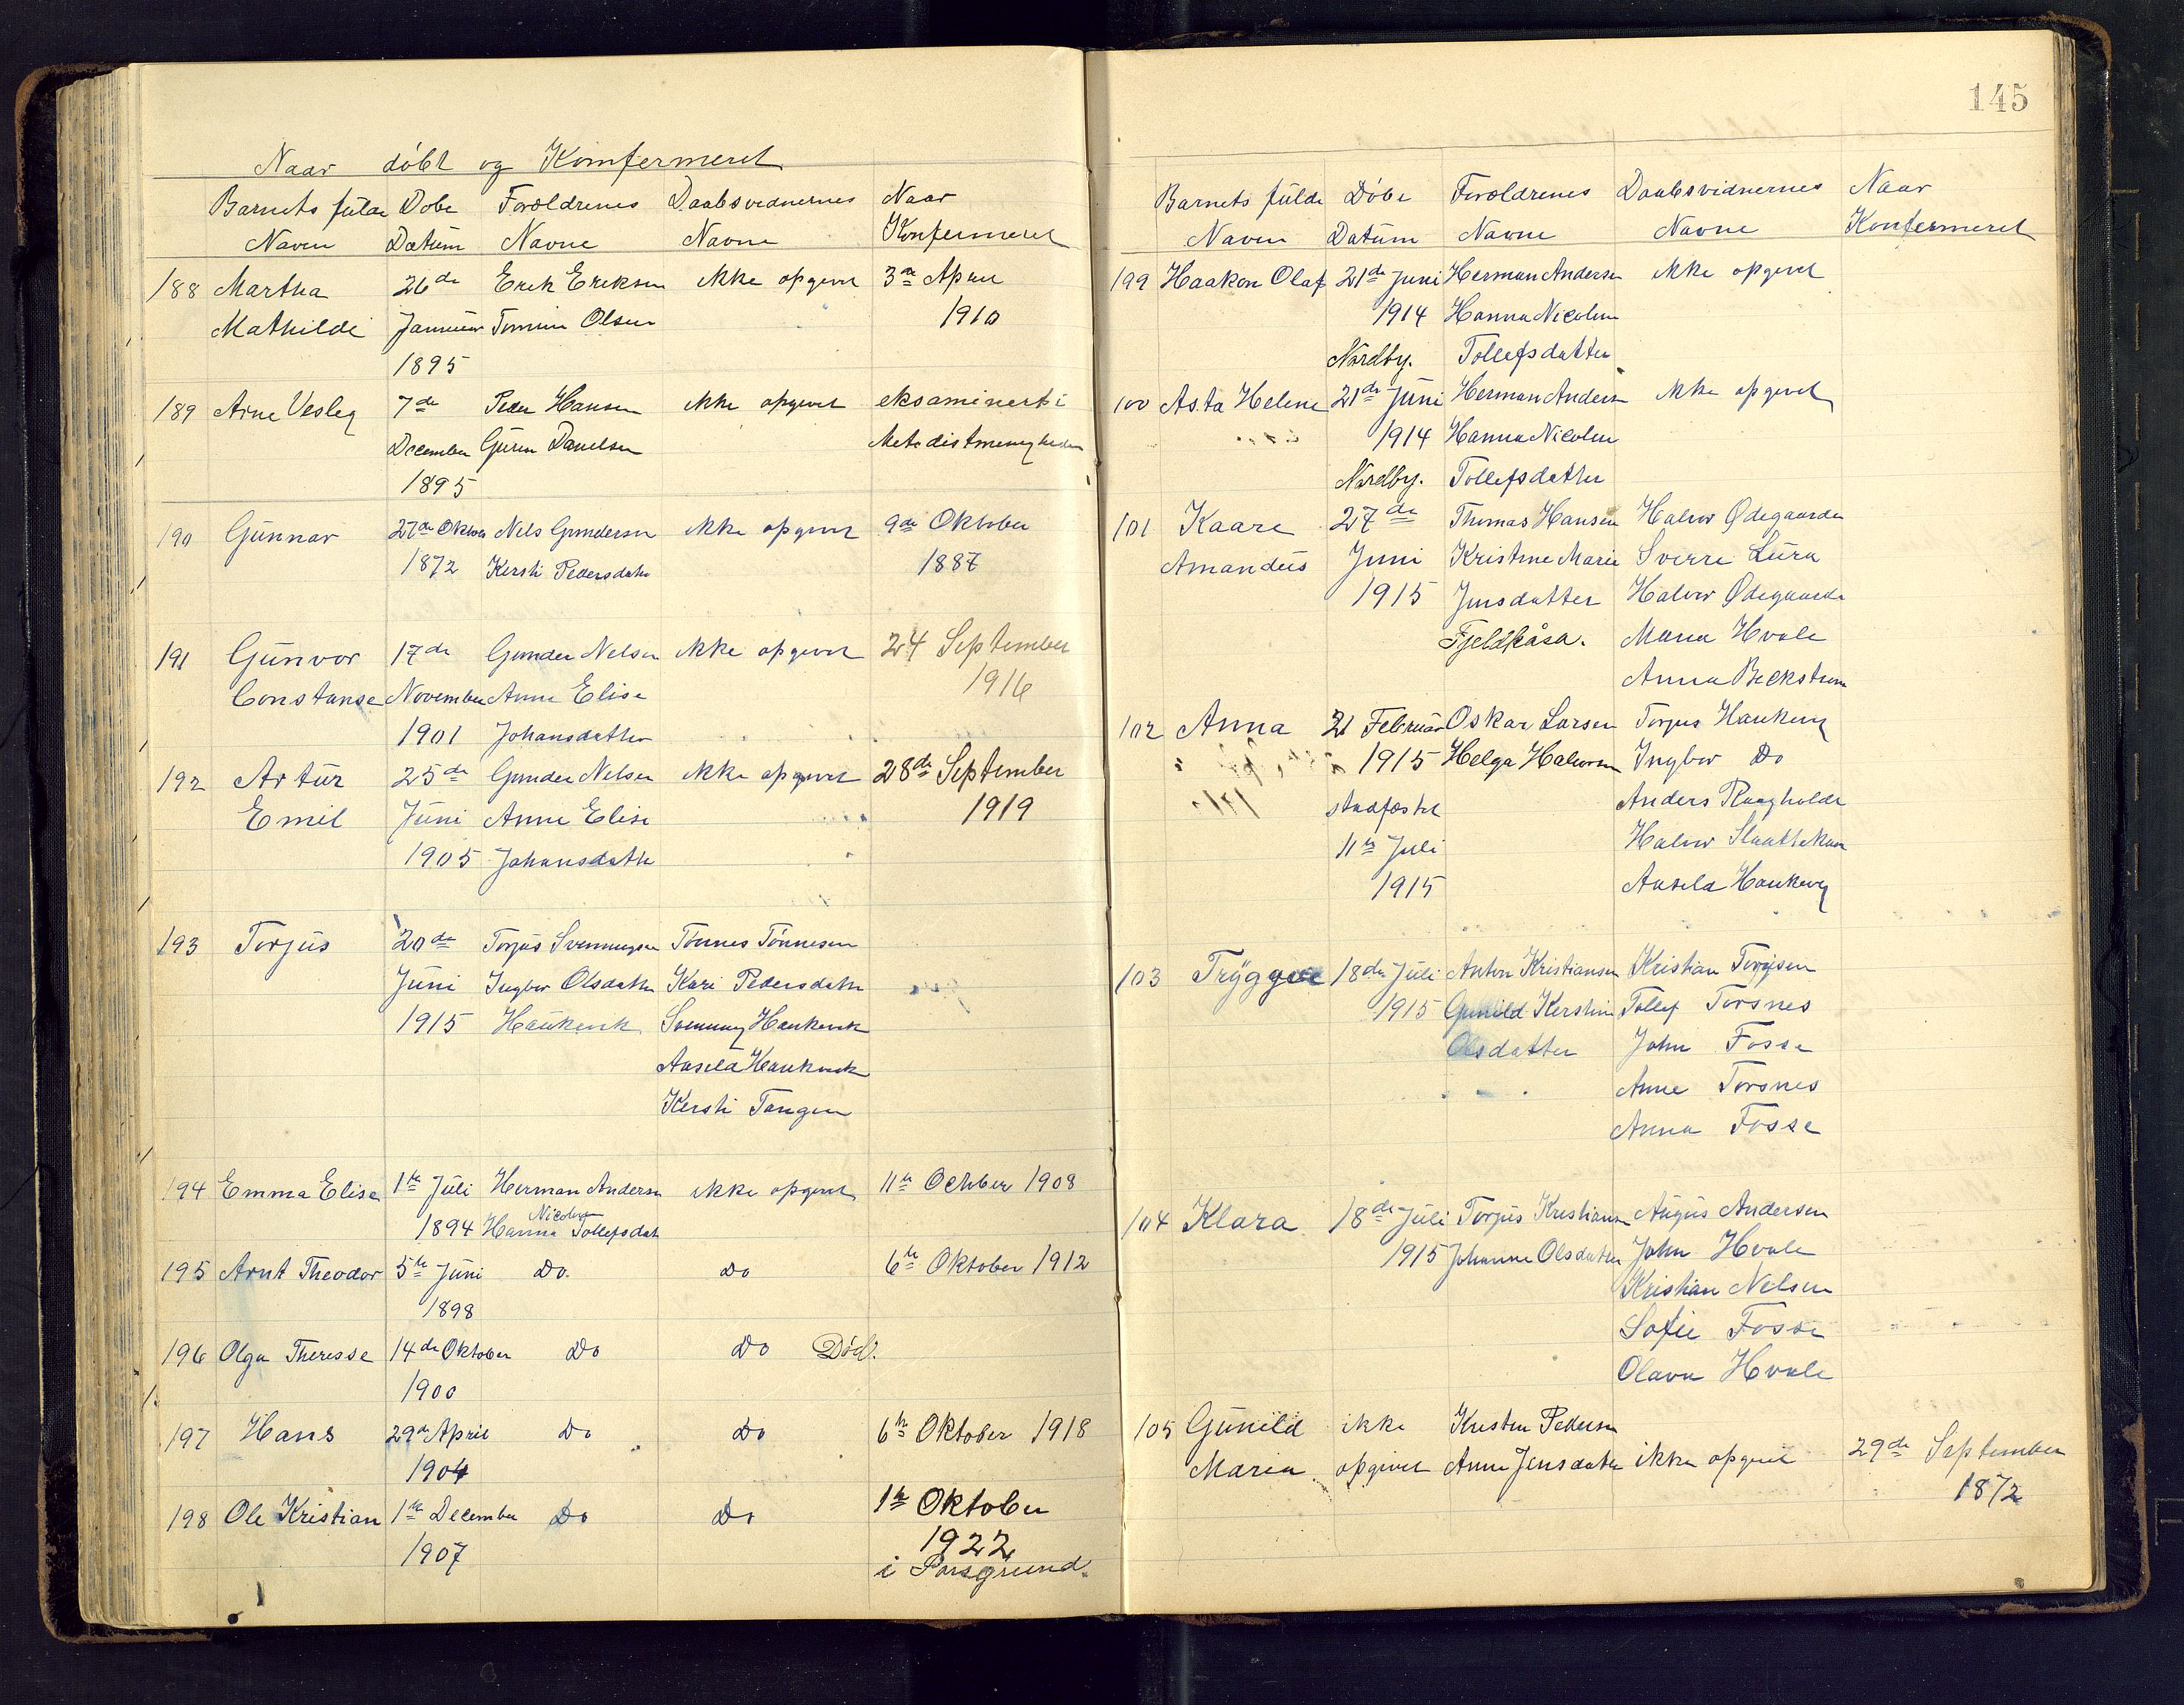 Naar döbt og Komfermeret
Barnets fulde Döbe Forældrenes Daabsvidnernes Naar
Navn Datum Navne Navne Konfermeret
188 Martha 26de Erik Eriksen ikke opgivet 3de April
Mathilde Januar Olsen 1910
1895
189 Arne Vesley 7de Peder Hansen ikke opgivet eksaminert i
December Guren Danielsen Metodistmenigheden
1895
190 Gunnar 27de Oktober Nels Gundersen ikke opgivet 9de Oktober
1872 Kersti Pedersdatter 1887
191 Gunvor 17de Gunder Nelsen ikke opgivet 24 September
Constanse November Anne Elise 1916
1901 Johansdatter
192 Artur 25de Gunder Nelsen ikke opgivet 28de September
Emil Juni Anne Elise 1919
1905 Johansdatter
193 Torjus 20de Torjus Svenningsen Tönnes Tönnesen
Juni Ingbor Olsdatter Kari Pedersdatter
1915 Haukenk Svenung Haukenk
Aasela Haukenk
Kersti Tangen
194 Emma Elise 1te Juli Herman Andersen ikke opgivet 11te October 1908
Nicoline
1894 Hanna Tollefsdat
195 Arnt Theodor 5te Juni Do. Do 6te Oktober 1912
1898
196 Olga Theresse 14de Oktober Do Do Död.
1900
197 Hans 29de April Do Do 6te Oktober 1918
1904
198 Ole Kristian 1te December Do Do 1te Oktober
1907 1922
i Porsgrund.
145
Barnets fulde Döbe Forældrenes Daabsvidnernes Naar
Navn Datum Navne Navne Konfermeret
199 Haakon Olaf 21de Juni Herman Andersen ikke opgivet
1914 Hanna Nicoline
Nordby. Tollefsdatter
100 Asta Helene 21de Juni Herman Andersen ikke opgivet
1914 Hanna Nicoline
Nordby. Tollefsdatter
101 Kaare 27de Thomas Hansen Halvor Ødegaarden
Amandus Juni Kristine Marie Sverre Lura
1915 Jensdatter Halvor Ødegaarden
Fjeldkåsa. Maria Hvale
Anna Beckstrom
102 Anna 21 Februar Oskar Larsen Torjus Haukeng
1915 Helga Halvorsen Ingbor Do
stadfæstet Anders Raagholdt
11te Juli Halvor Slaattekaas
1915 Aasela Haukeng
103 Tryggve 18de Juli Anton Kristiansen Kristian Torjusen
1915 Gunild Kerstine Tollef Torsnes
Olsdatter John Fosse
Anne Torsnes
Anna Fosse
104 Klara 18de Juli Torjus Kristiansen August Andersen
1915 Johanne Olsdatter John Hvale
Kristian Nelsen
Sofie Fosse
Olava Hvale
105 Gunild ikke Kresten Pedersen
Maria opgivet Anne Jensdatter ikke opgivet 29de September
1872